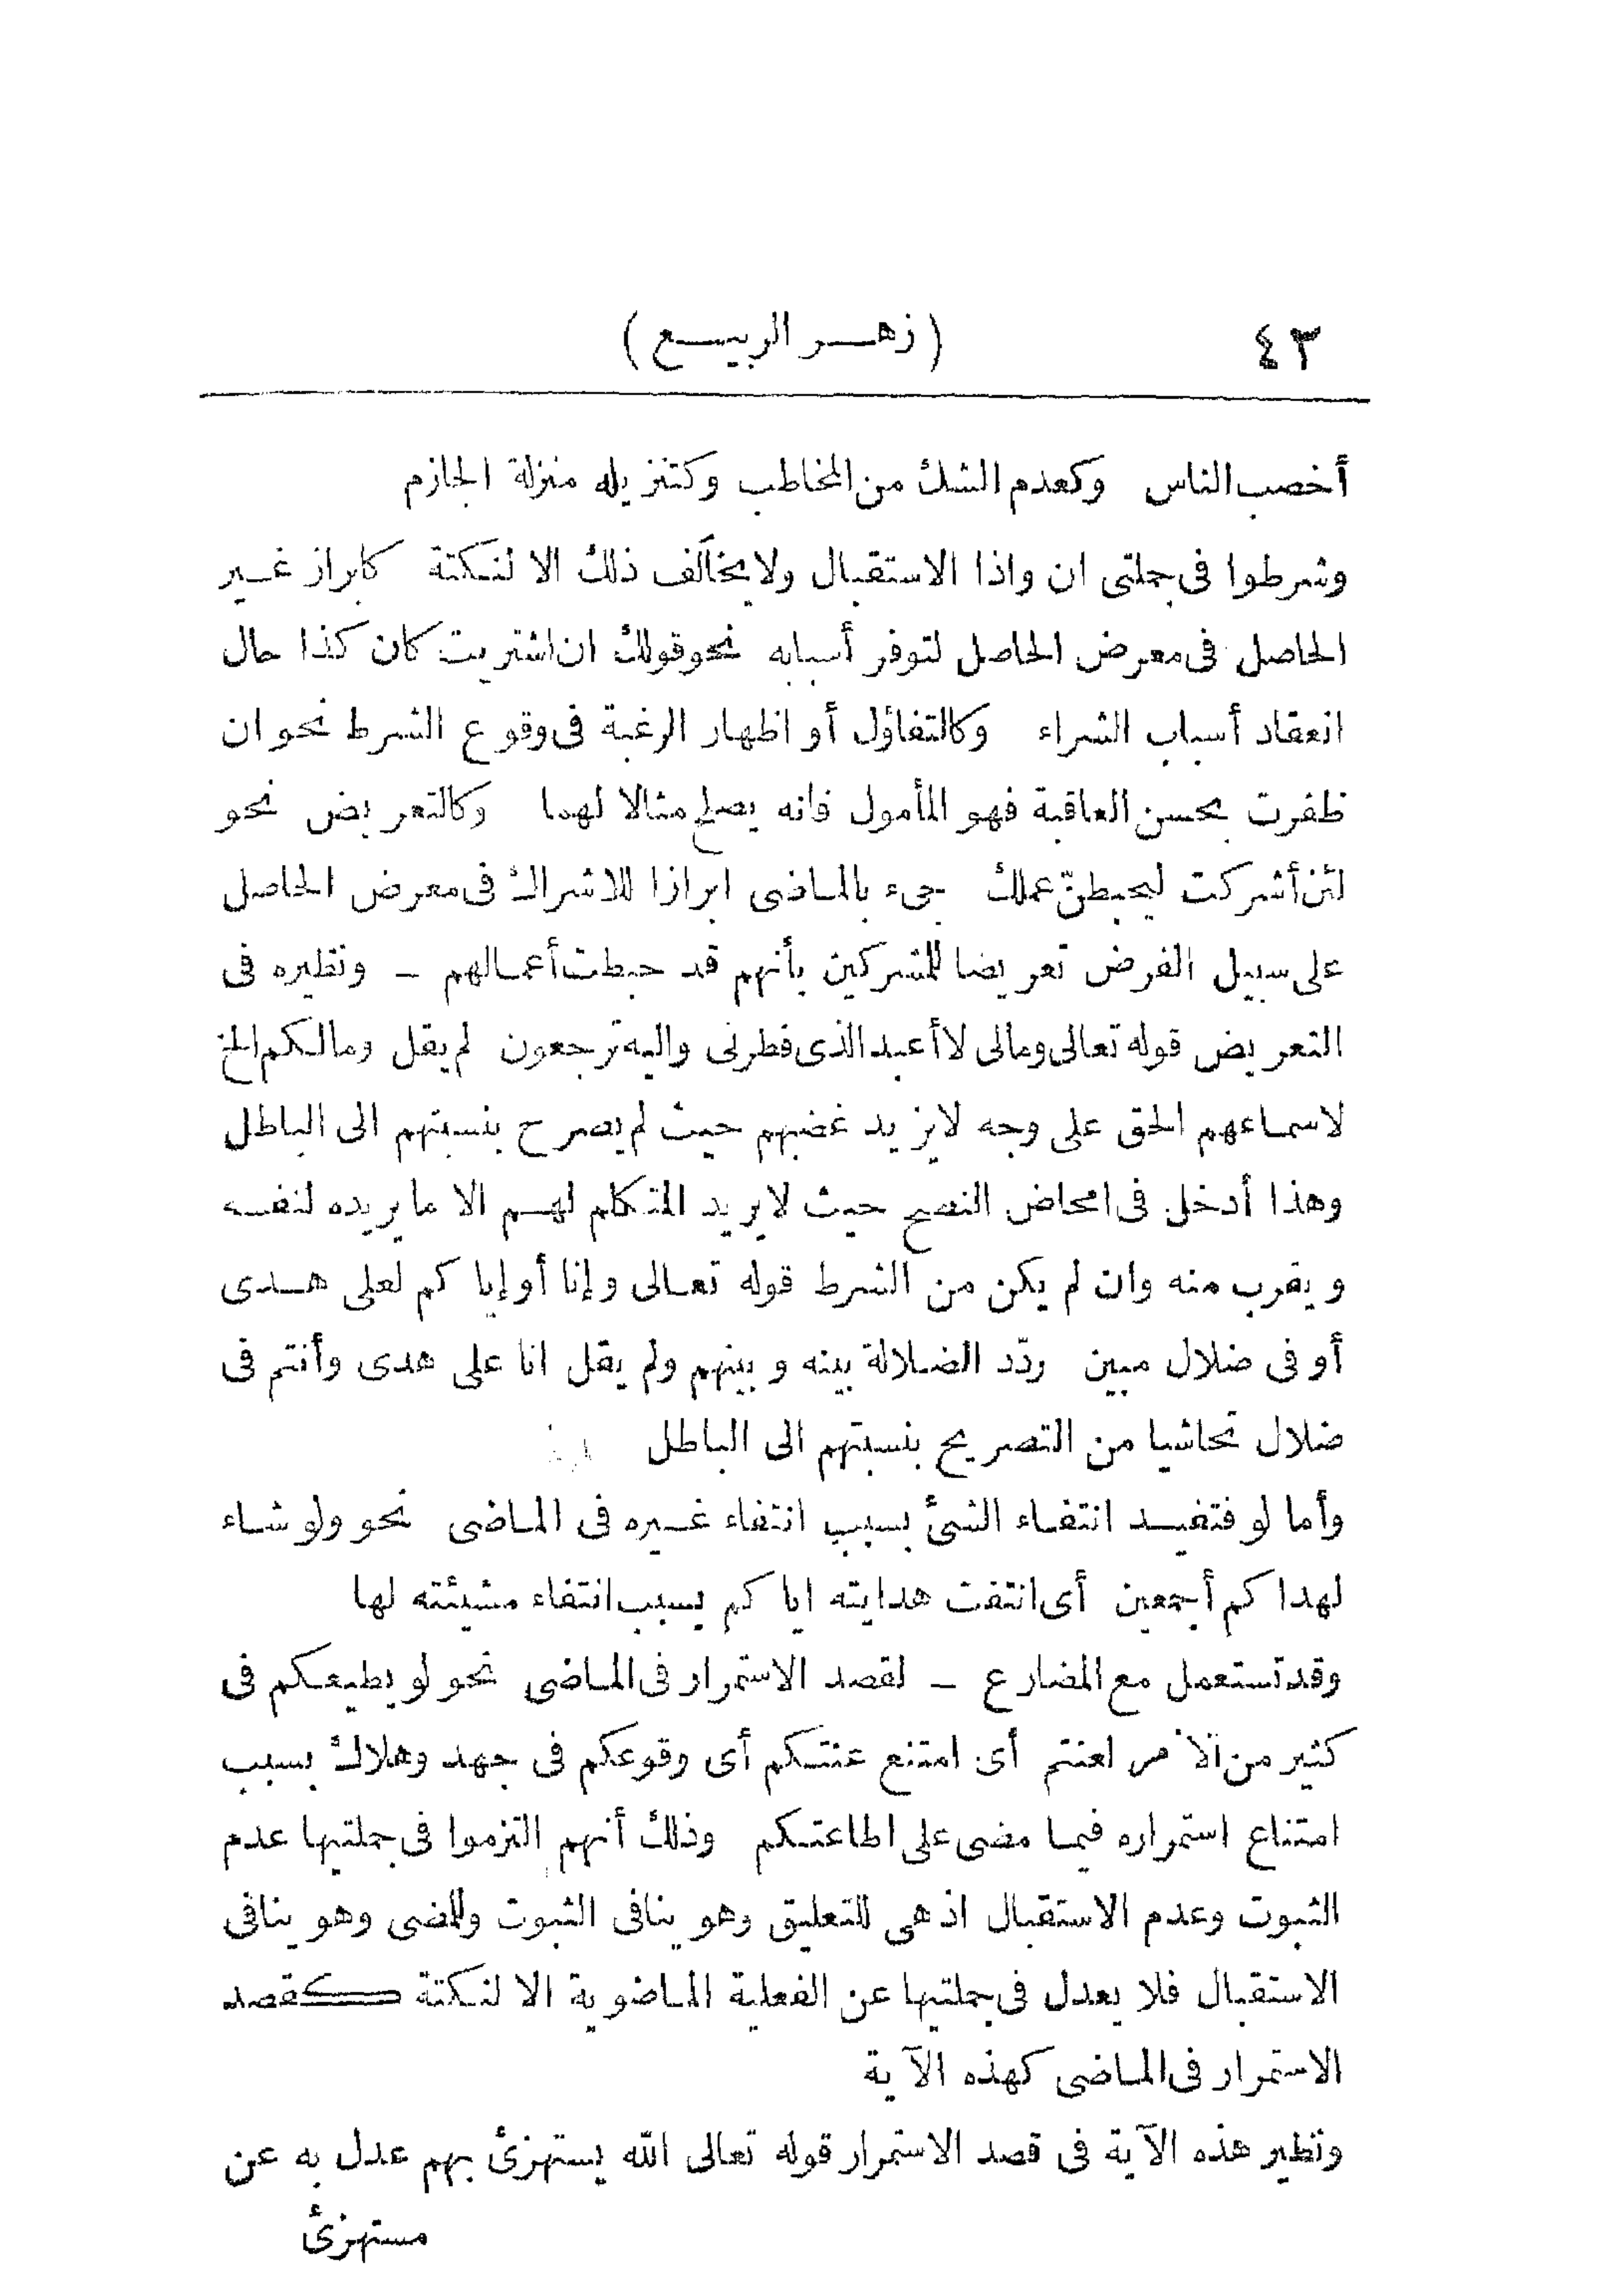 ٤٣
(زهر الربيع)
أخصب الناس وكعدم الشك من المخاطب وكتنزيله منزلة الجازم
وشرطوا فى جملتى ان واذا الاستقبال ولا يخالف ذلك الا لنكتة كابراز غير
الحاصل فى معرض الحاصل لتوفر أسبابه نحو قولك ان اشتريت كان كذا حال
انعقاد أسباب الشراء وكالتفاؤل أو اظهار الرغبة فى وقوع الشرط نحو ان
ظفرت بحسن العاقبة فهو المأمول فانه يصلح مثالا لهما وكالتعريض نحو
لئن أشركت ليحبطنّ عملك جىء بالماضى ابرازا للاشراك فى معرض الحاصل
على سبيل الفرض تعريضا للمشركين بأنهم قد حبطت أعمالهم - ونظيره فى
التعريض قوله تعالى ومالى لا أعبد الذى فطرنى واليه ترجعون لم يقل ومالكم الخ
لاسماعهم الحق على وجه لا يزيد غضبهم حيث لم يصرح بنسبتهم الى الباطل
وهذا أدخل فى امحاض النصح حيث لا يريد المتكلم لهم الا ما يريده لنفسه
ويقرب منه وان لم يكن من الشرط قوله تعالى وإنا أو إياكم لعلى هدى
أو فى ضلال مبين ردّد الضلالة بينه وبينهم ولم يقل انا على هدى وأنتم فى
ضلال تحاشيا من التصريح بنسبتهم الى الباطل
وأما لو فتفيد انتفاء الشئ بسبب انتفاء غيره فى الماضى نحو ولو شاء
لهداكم أجمعين أى انتفت هدايته اياكم بسبب انتفاء مشيئته لها
وقد تستعمل مع المضارع - لقصد الاستمرار فى الماضى نحو لو يطيعكم فى
كثير من الأمر لعنتم أى امتنع عنتكم أى وقوعكم فى جهد وهلاك بسبب
امتناع استمراره فيما مضى على اطاعتكم وذلك أنهم التزموا فى جملتيها عدم
الثبوت وعدم الاستقبال اذ هى للتعليق وهو ينافى الثبوت وللمضى وهو ينافى
الاستقبال فلا يعدل فى جملتيها عن الفعلية الماضوية الا لنكتة كقصد
الاستمرار فى الماضى كهذه الآية
ونظير هذه الآية فى قصد الاستمرار قوله تعالى الله يستهزئ بهم عدل به عن
مستهزئ